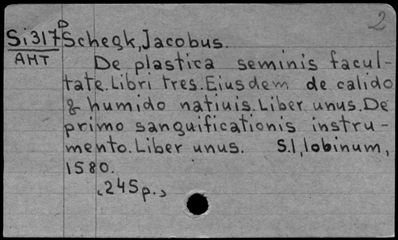 2
D
Si317 Schegk, Jacobus.
AHT De plastica seminis facul-
tate. Libri tres. Eiusdem de calido
& humido natiuis. Liber unus. De
primo sanguificationis instru-
mento. Liber unus. S.l, lobinum,
1580.
<245p.>